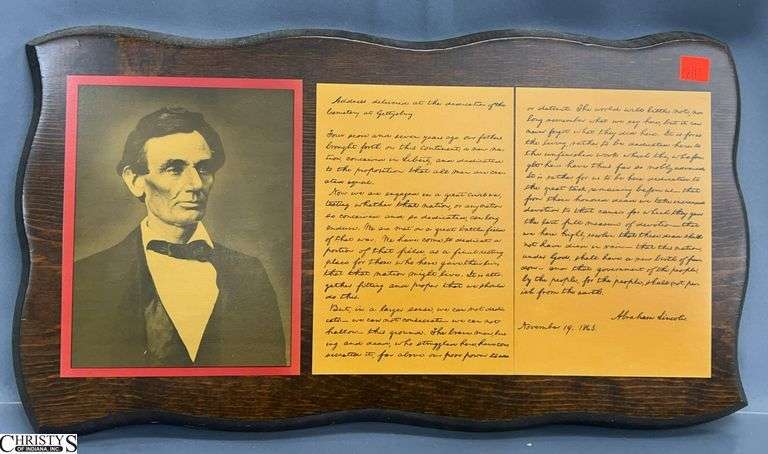 Address delivered at the dedication of the
Cemetery at Gettysburg.
Four score and seven years ago our fathers
brought forth on this continent, a new na-
tion, conceived in Liberty, and dedicated
to the proposition that all men are cre-
ated equal.
Now we are engaged in a great civil war,
testing whether that nation, or any nation
so conceived and so dedicated, can long
endure. We are met on a great battle-field
of that war. We have come to dedicate a
portion of that field, as a final resting
place for those who here gave their lives
that that nation might live. It is alto-
gether fitting and proper that we should
do this.
But, in a larger sense, we can not dedi-
cate— we can not consecrate— we can not
hallow— this ground. The brave men, liv-
ing and dead, who struggled here, have con-
secrated it, far above our poor power to add
or detract. The world will little note, nor
long remember what we say here, but it can
never forget what they did here. It is for us
the living, rather, to be dedicated here to
the unfinished work which they who fou-
ght here have thus far so nobly advanced.
It is rather for us to be here dedicated to
the great task remaining before us— that
from these honored dead we take increased
devotion to that cause for which they gave
the last full measure of devotion— that
we here highly resolve that these dead shall
not have died in vain— that this nation,
under God, shall have a new birth of free-
dom— and that government of the people,
by the people, for the people, shall not per-
ish from the earth.
Abraham Lincoln
November 19, 1863
CHRISTY'S
OF INDIANA, INC.